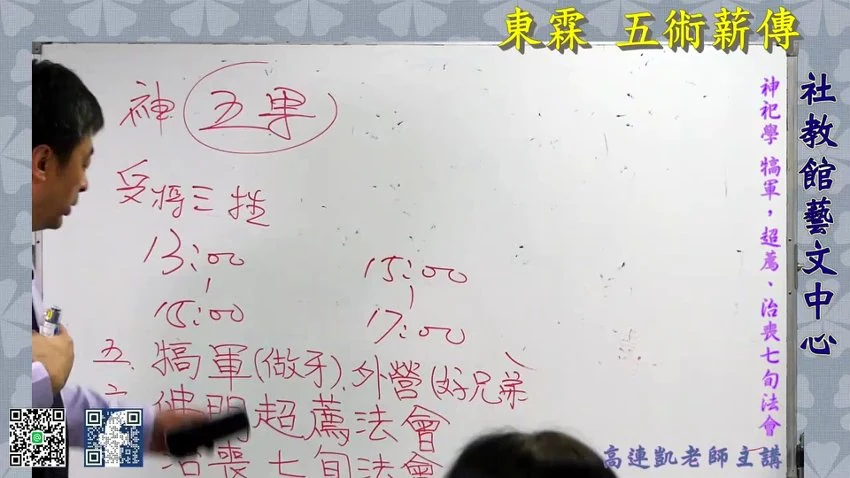 東霖 五術薪傳
社教館藝文中心
神祀學 犒軍,超薦、治喪七旬法會
神 五果
受將三牲
13:00 15:00
15:00 17:00
五、犒軍(做牙)、外營(好兄弟
超薦法會
治喪七旬法會
高連凱老師主講